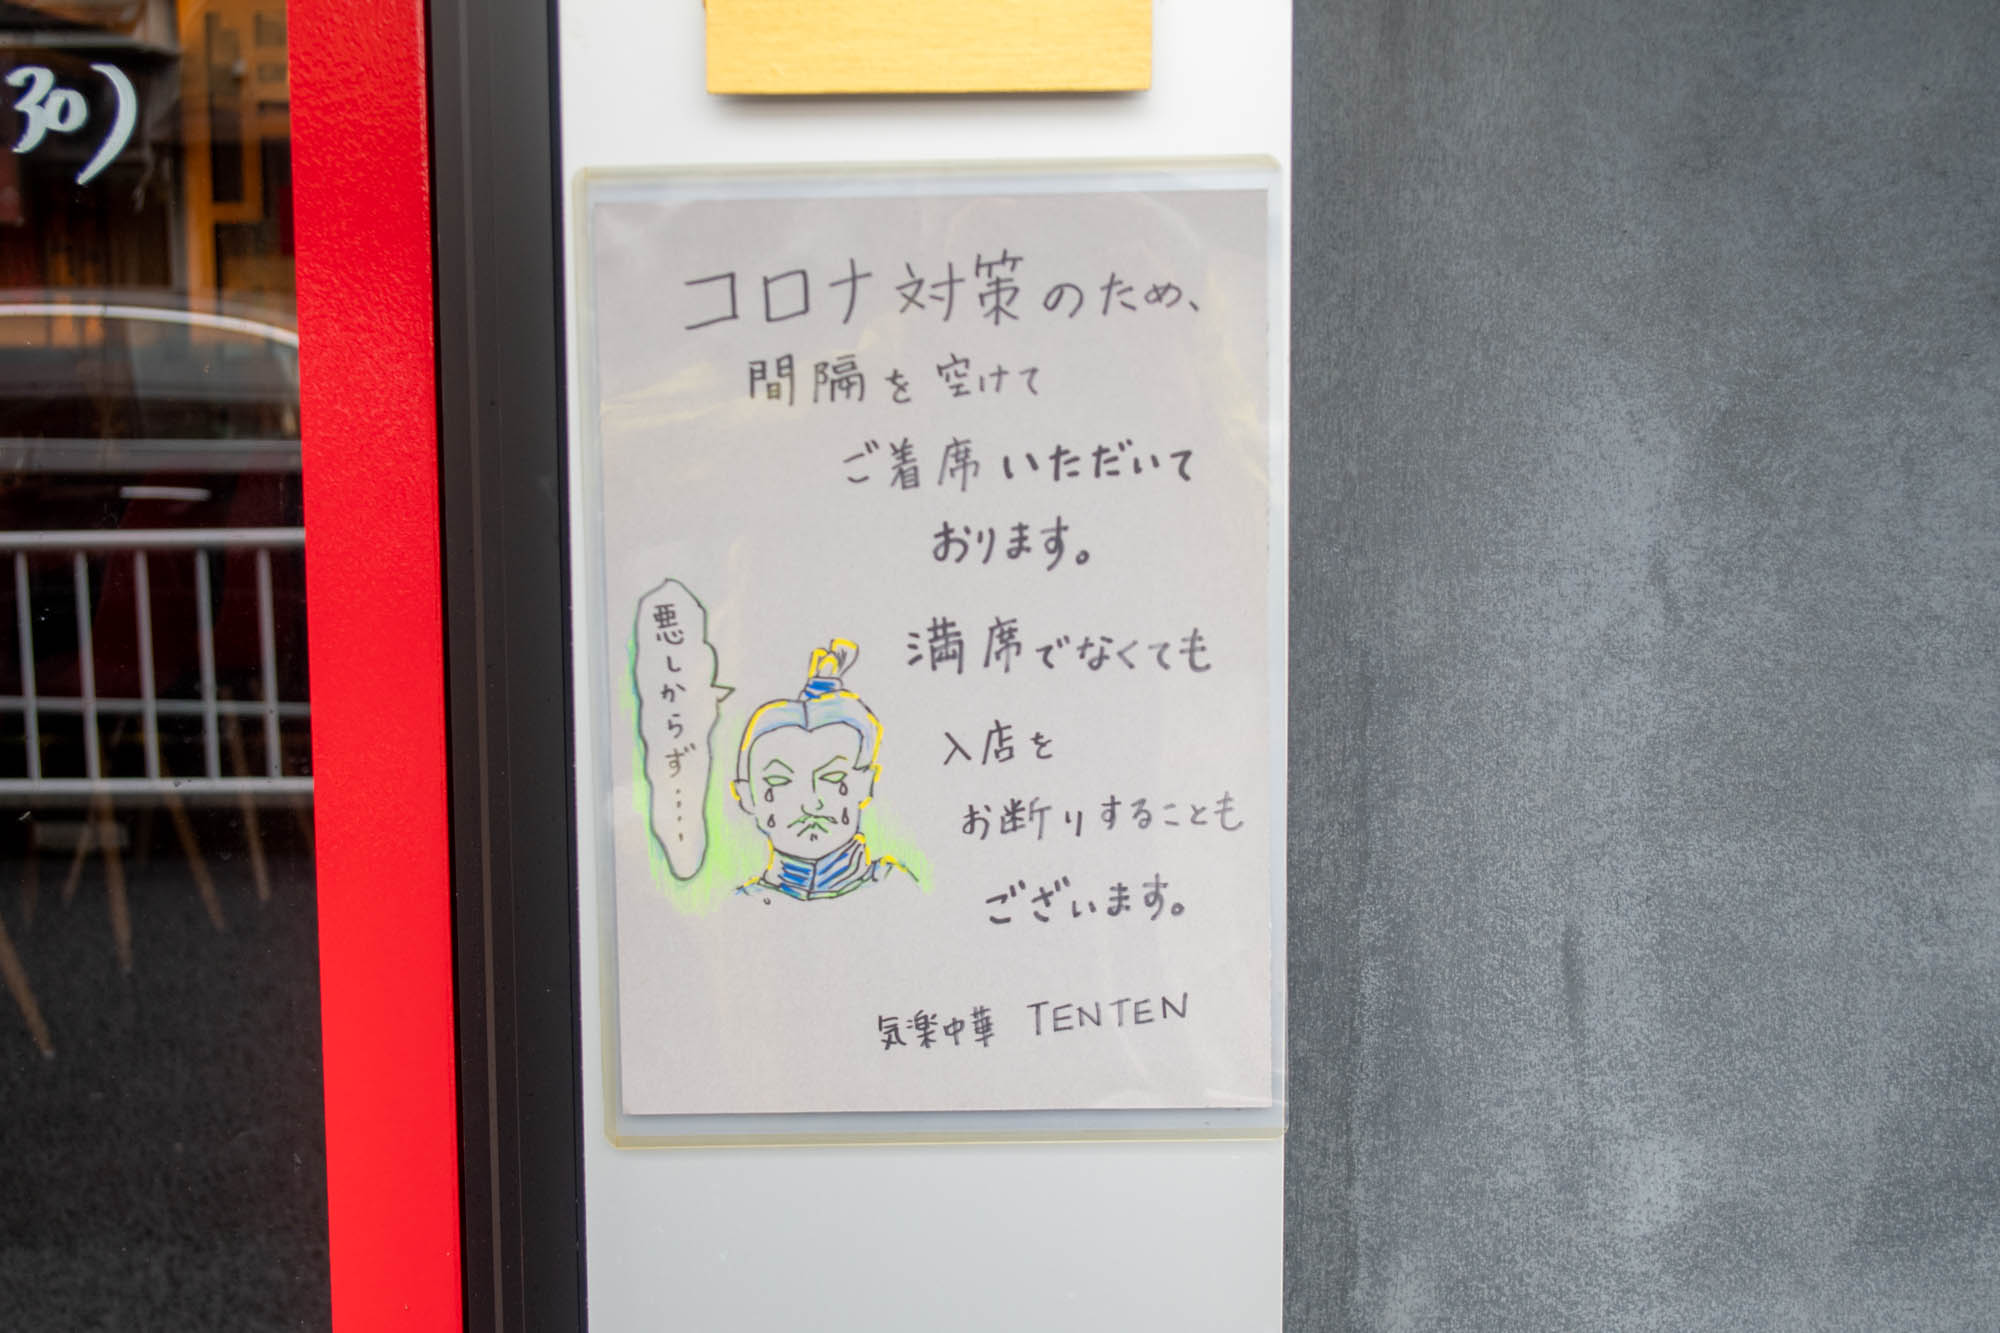 30)
コロナ対策のため、
間隔を空けて
ご着席いただいて
おります。
満席でなくても
入店を
お断りすることも
ございます。
悪しからず‥‥，
気楽中華 TENTEN